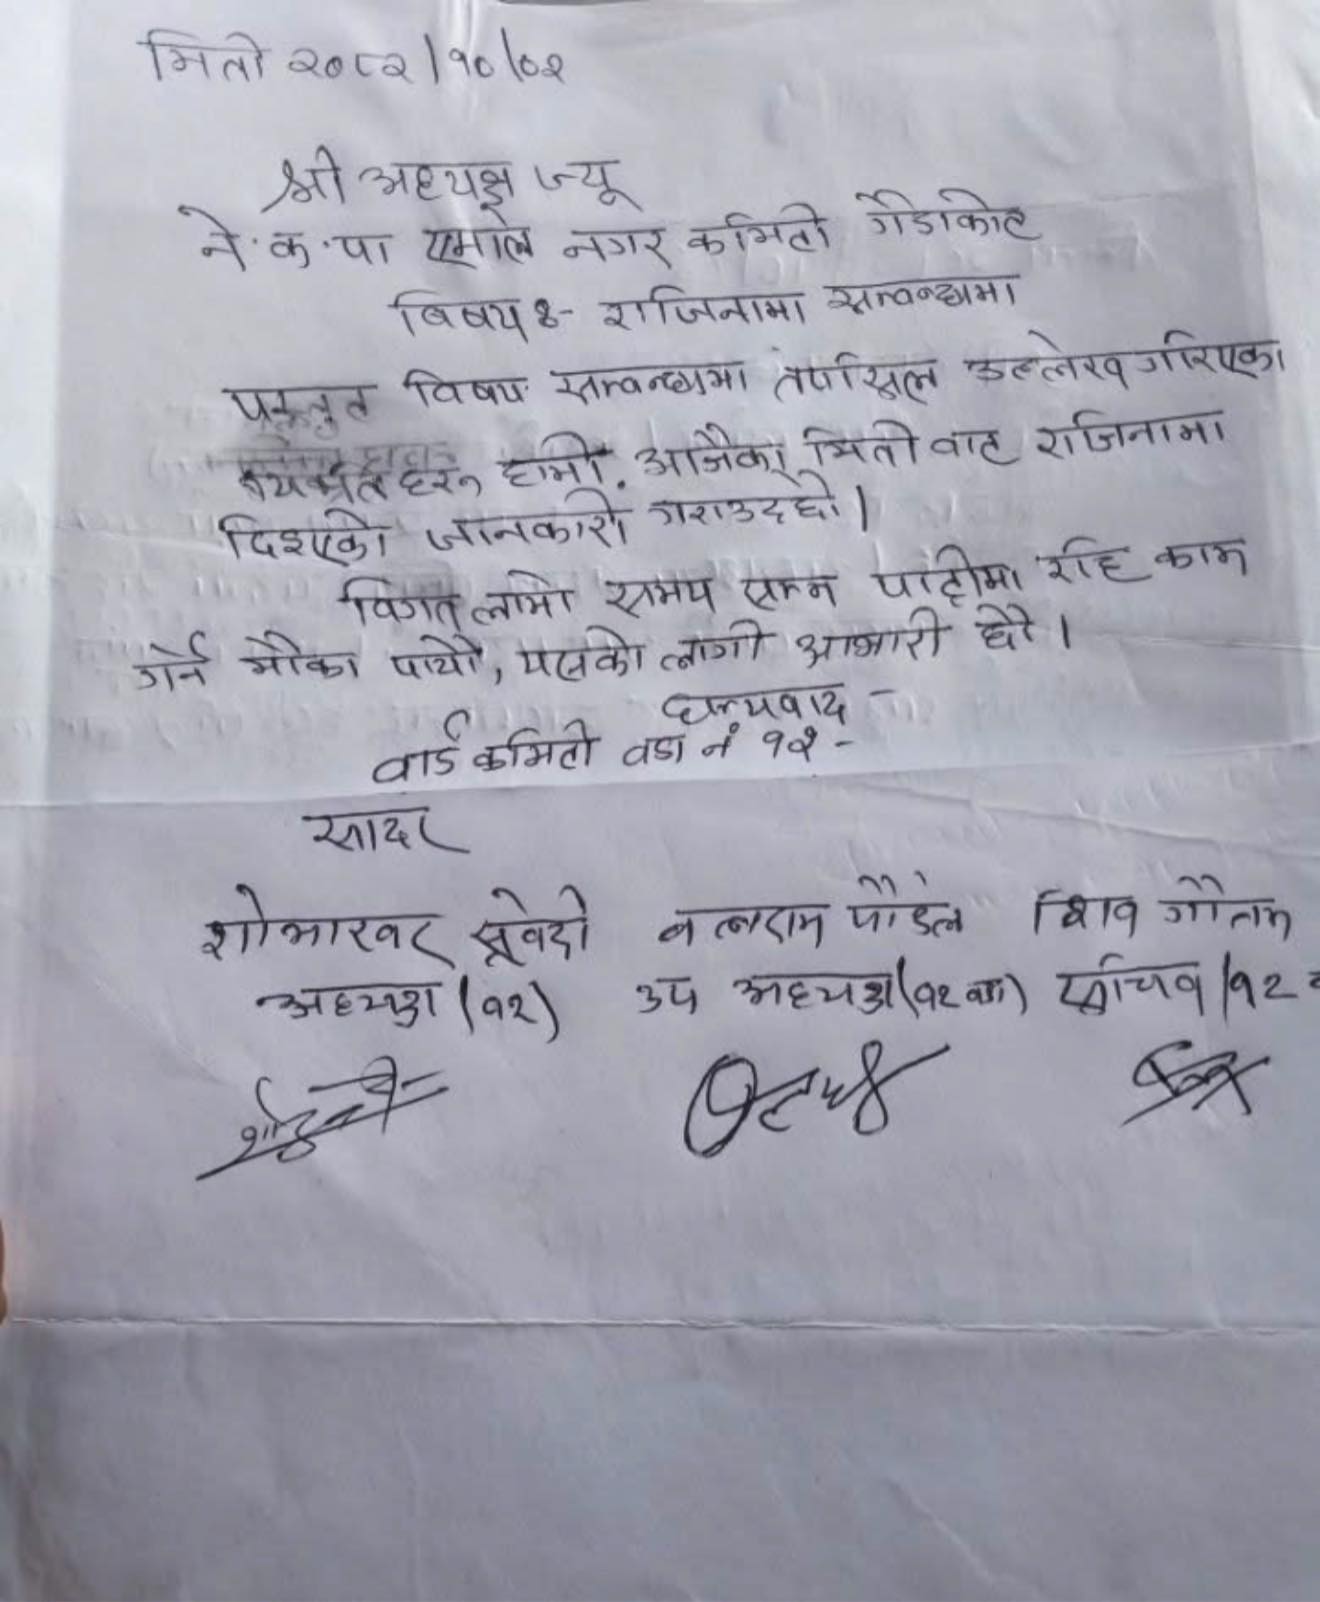 मिती २०८२/१०/०२
श्री अध्यक्ष ज्यू
ने.क.पा एमाले नगर कमिती गैंडाकोट
बिषय :- राजिनामा सम्वन्धमा
प्रस्तुत विषय सम्वन्धमा तपसिल उल्लेख गरिएका
हरु हामी आजैका मिती वाट राजिनामा
दिइएको जानकारी गराउदछौ।
विगत लामो समय सम्म पार्टीमा रहि काम
गर्ने मौका पायौ, यसको लागी आभारी छौ।
धन्यवाद -
वार्ड कमिती वडा नं १२ -
सादर
शोभाखर सुवेदी बलराम पौडेल शिव गौतम
अध्यक्ष (१२) उप अध्यक्ष (१२ वडा) सचिव (१२ व